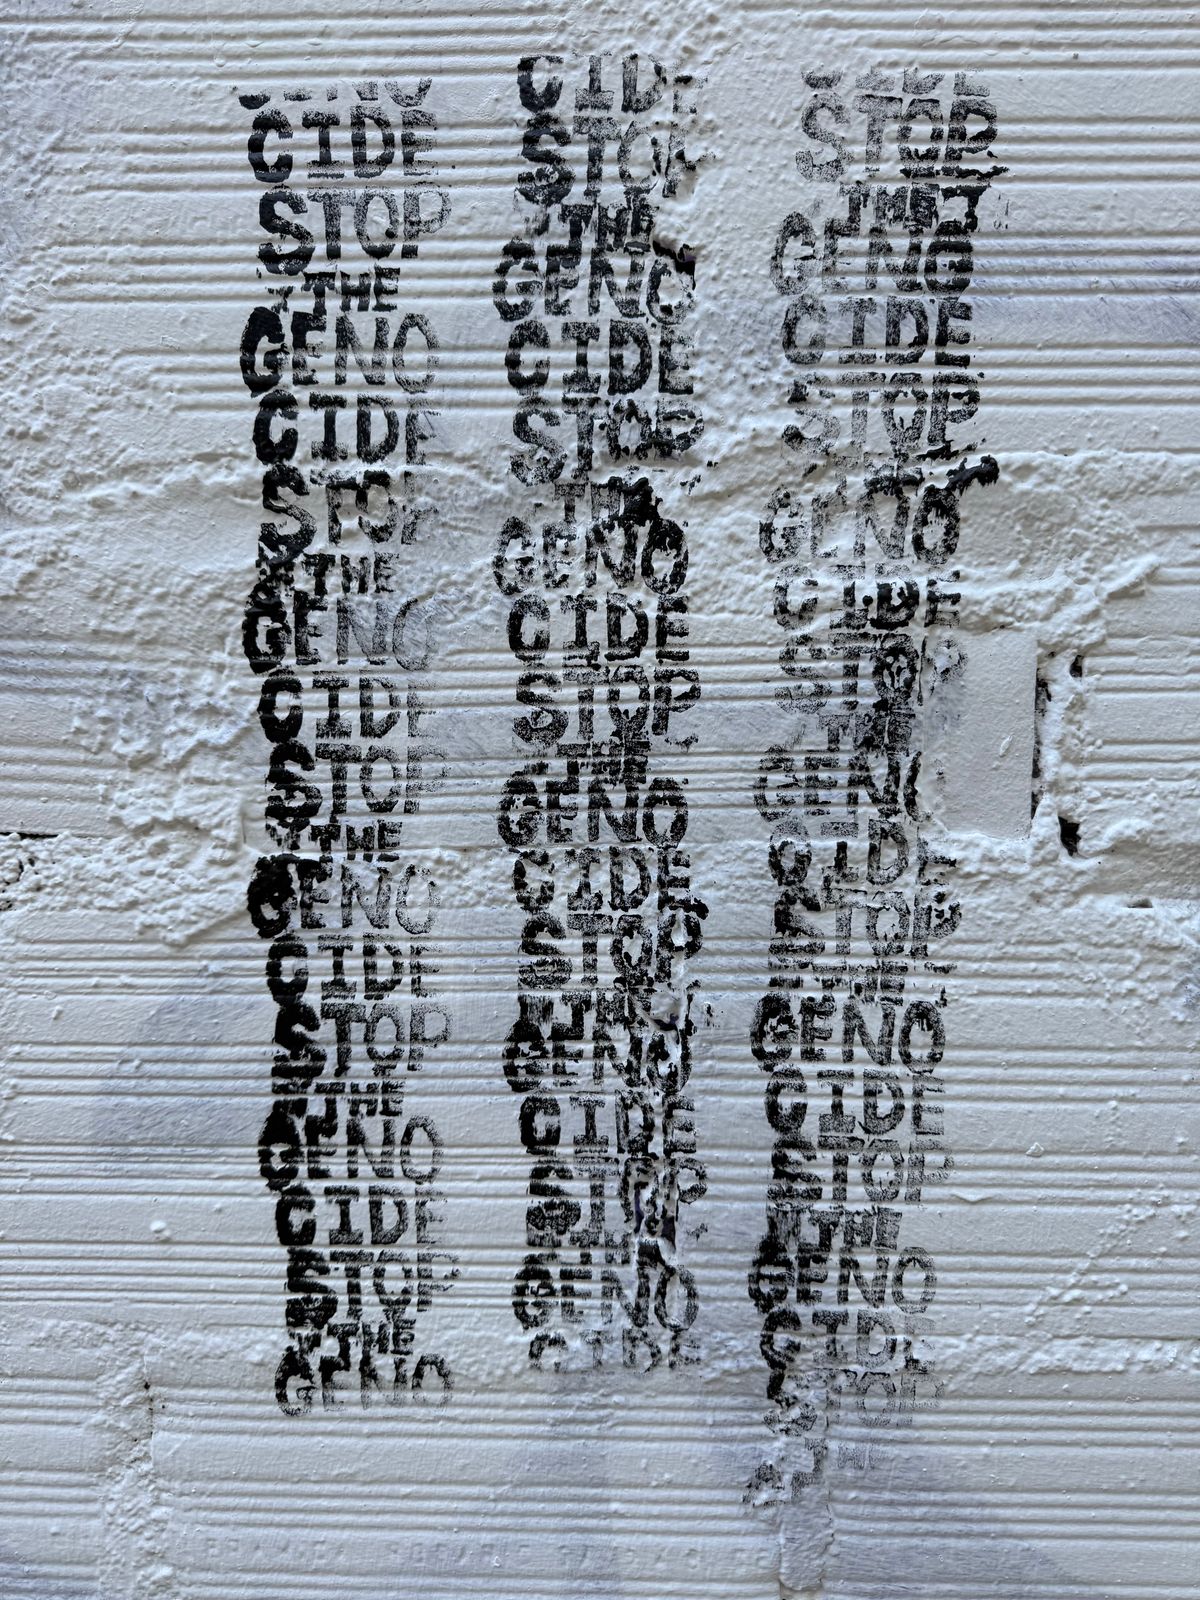 GENO
CIDE
STOP
THE
GENO
CIDE
STOP
THE
GENO
CIDE
STOP
THE
GENO
CIDE
STOP
THE
GENO
CIDE
STOP
THE
GENO
CIDE
STOP
THE
GENO
CIDE
STOP
THE
GENO
CIDE
STOP
THE
GENO
CIDE
STOP
THE
GENO
CIDE
STOP
GENO
CIDE
CIDE
STOP
THE
GENO
CIDE
STOP
GENO
CIDE
STOP
THE
GENO
CIDE
STOP
THE
GENO
CIDE
STOP
THE
GENO
CIDE
STOP
THE